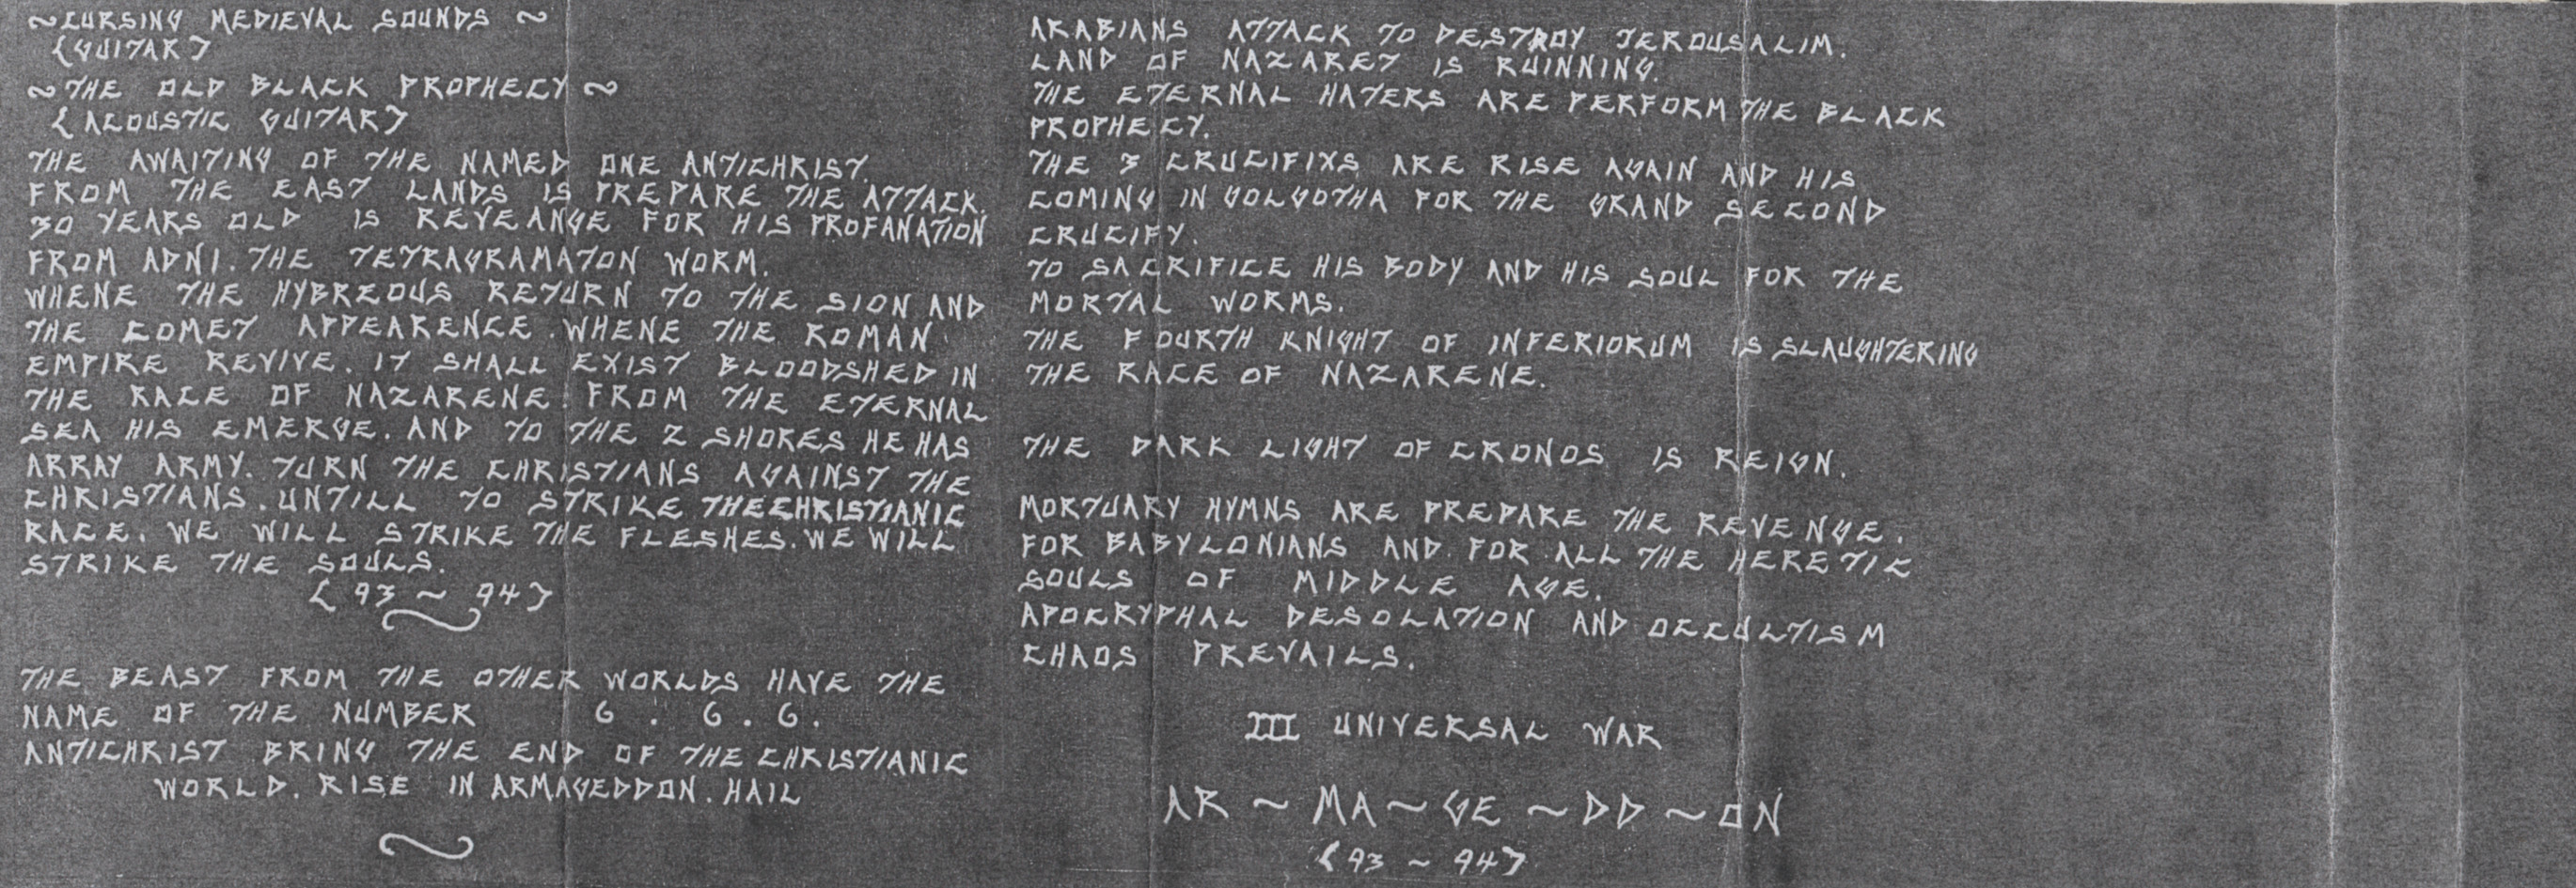 ~CURSING MEDIEVAL SOUNDS ~
{GUITAR}
~THE OLD BLACK PROPHECY ~
{ACOUSTIC GUITAR}
THE AWAITING OF THE NAMED ONE ANTICHRIST,
FROM THE EAST LANDS IS PREPARE THE ATTACK,
30 YEARS OLD IS REVEANGE FOR HIS PROFANATION
FROM ADNI. THE TETRAGRAMATON WORM.
WHENE THE HYBREOUS RETURN TO THE SION AND
THE COMET APPEARENCE. WHENE THE ROMAN
EMPIRE REVIVE. IT SHALL EXIST BLOODSHED IN
THE RACE OF NAZARENE FROM THE ETERNAL
SEA HIS EMERGE. AND TO THE 2 SHORES HE HAS
ARRAY ARMY. TURN THE CHRISTIANS AGAINST THE
CHRISTIANS. UNTILL TO STRIKE THE CHRISTIANIC
RACE. WE WILL STRIKE THE FLESHES. WE WILL
STRIKE THE SOULS.
{93 ~ 94}
THE BEAST FROM THE OTHER WORLDS HAVE THE
NAME OF THE NUMBER 6 . 6 . 6 .
ANTICHRIST BRING THE END OF THE CHRISTIANIC
WORLD. RISE IN ARMAGEDDON. HAIL
ARABIANS ATTACK TO DESTROY JEROUSALIM.
LAND OF NAZARET IS RUINNING.
THE ETERNAL HATERS ARE PERFORM THE BLACK
PROPHECY.
THE 3 CRUCIFIXS ARE RISE AGAIN AND HIS
COMING IN GOLGOTHA FOR THE GRAND SECOND
CRUCIFY.
TO SACRIFICE HIS BODY AND HIS SOUL FOR THE
MORTAL WORMS.
THE FOURTH KNIGHT OF INFERIORUM IS SLAUGHTERING
THE RACE OF NAZARENE.
THE DARK LIGHT OF CRONOS IS REIGN.
MORTUARY HYMNS ARE PREPARE THE REVENGE.
FOR BABYLONIANS AND FOR ALL THE HERETIC
SOULS OF MIDDLE AGE.
APOCRYPHAL DESOLATION AND OCCULTISM
CHAOS PREVAILS.
III UNIVERSAL WAR
AR ~ MA ~ GE ~ DD ~ ON
{93 ~ 94}